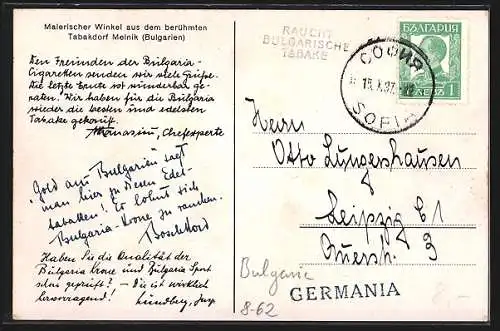 Malerischer Winkel aus dem berühmten
Tabakdorf Melnik (Bulgarien)
Den Freunden der Bulgaria-
Cigaretten senden wir viele Grüße.
Die letzte Ernte ist wunderbar ge-
raten! Wir haben für die Bulgaria
wieder die besten und edelsten
Tabake gekauft.
Athanasiu, Chefexperte
Gold aus Bulgarien sagt
man hier zu deren Edel-
tabaken! Es lohnt sich
Bulgaria-Krone zu rauchen.
Haben Sie die Qualität der
Bulgaria Krone und Bulgaria Sport
schon geprüft? – Die ist wirklich
hervorragend!
Lundberg,
RAUCHT
BULGARISCHE
TABAKE
СОФИЯ
SOFIA
БЪЛГАРИЯ
1
Herrn
Otto Lungershausen
Leipzig C1
Querstr. 9
Bulgarie
8-62
GERMANIA
8,-